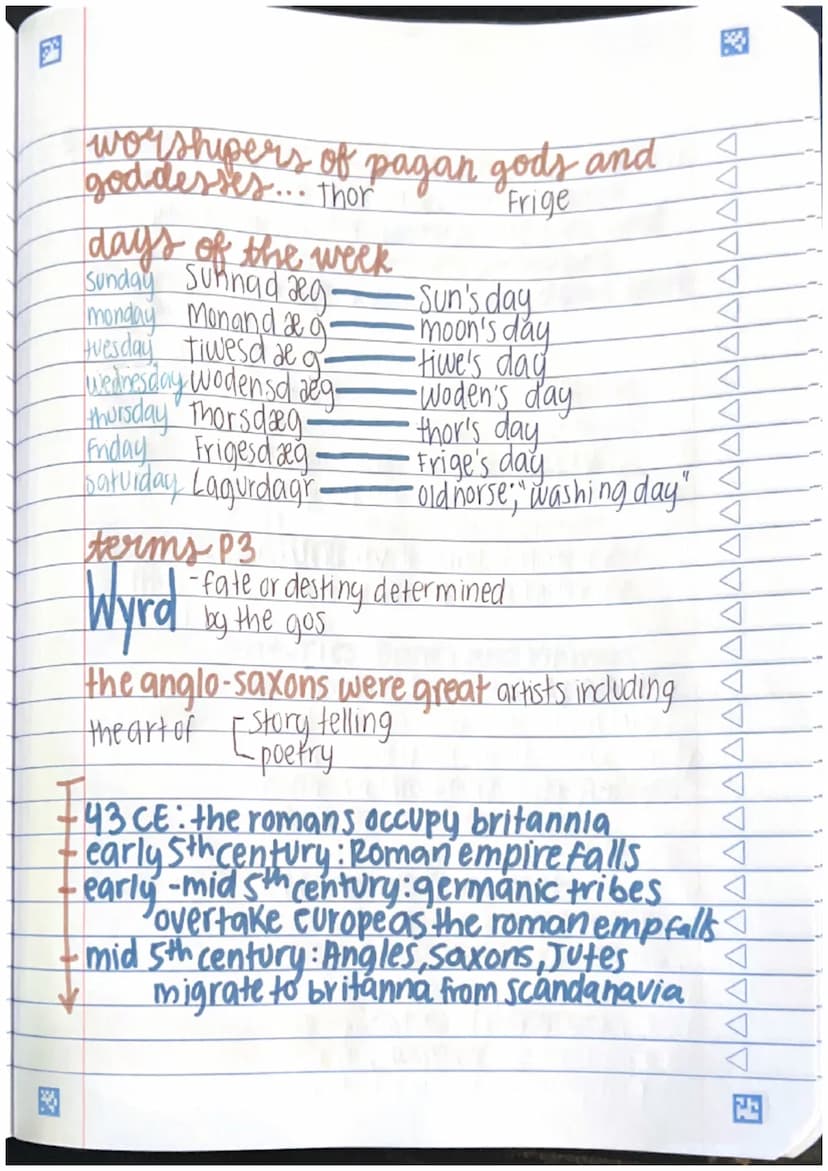 worshipers of pagan gods and
goddesses... Thor Frige
days of the week
sunday Sunnad æg — Sun's day
monday Monand æ g — moon's day
tuesday tiwesd æ g — tiwe's day
wednesday Wodensd æg — Woden's day
thursday Thorsdæg — thor's day
Friday Frigesd æg — Frige's day
saturday Lagurdagr — old norse; "washing day"
terms P3
Wyrd - fate or destiny determined
by the gos
the anglo-saxons were great artists including
the art of [story telling
poetry
43 CE: the romans occupy britannia
early 5th century: Roman empire falls
early-mid 5th century: germanic tribes
overtake Europe as the roman emp falls
mid 5th century: Angles, Saxons, Jutes
migrate to britanna from scandanavia